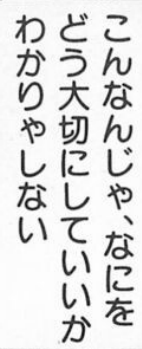 こんなんじゃ、なにを
どう大切にしていいか
わかりゃしない